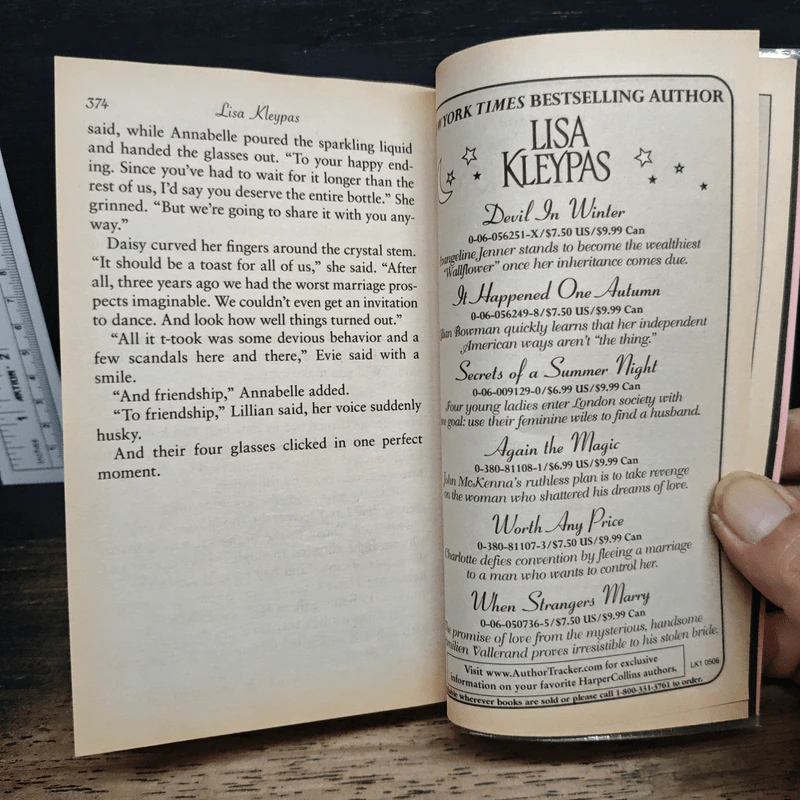 374
Lisa Kleypas
said, while Annabelle poured the sparkling liquid
and handed the glasses out. “To your happy end-
ing. Since you’ve had to wait for it longer than the
rest of us, I’d say you deserve the entire bottle.” She
grinned. “But we’re going to share it with you any-
way.”
Daisy curved her fingers around the crystal stem.
“It should be a toast for all of us,” she said. “After
all, three years ago we had the worst marriage pros-
pects imaginable. We couldn’t even get an invitation
to dance. And look how well things turned out.”
“All it t-took was some devious behavior and a
few scandals here and there,” Evie said with a
smile.
“And friendship,” Annabelle added.
“To friendship,” Lillian said, her voice suddenly
husky.
And their four glasses clicked in one perfect
moment.
YORK TIMES BESTSELLING AUTHOR
LISA
KLEYPAS
Devil In Winter
0-06-056251-X/$7.50 US/$9.99 Can
Evangeline Jenner stands to become the wealthiest
“Wallflower” once her inheritance comes due.
It Happened One Autumn
0-06-056249-8/$7.50 US/$9.99 Can
Bowman quickly learns that her independent
American ways aren’t “the thing.”
Secrets of a Summer Night
0-06-009129-0/$6.99 US/$9.99 Can
Four young ladies enter London society with
goal: use their feminine wiles to find a husband.
Again the Magic
0-380-81108-1/$6.99 US/$9.99 Can
John McKenna’s ruthless plan is to take revenge
on the woman who shattered his dreams of love.
Worth Any Price
0-380-81107-3/$7.50 US/$9.99 Can
Charlotte defies convention by fleeing a marriage
to a man who wants to control her.
When Strangers Marry
0-06-050736-5/$7.50 US/$9.99 Can
promise of love from the mysterious, handsome
Vallerand proves irresistible to his stolen bride.
Visit www.AuthorTracker.com for exclusive
information on your favorite HarperCollins authors.
LK1 0506
wherever books are sold or please call 1-800-331-3761 to order.